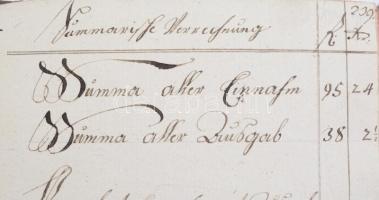 239.
Summarische Verrechnung
R. X.
Summa aller Einnahm 95 24
Summa aller Ausgab 38 2½